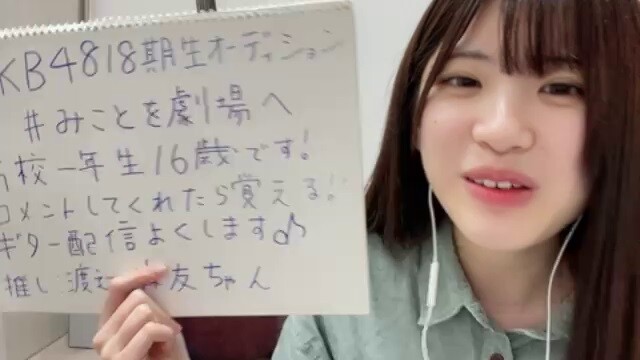 KB4818期生オーディション
#みことを劇場へ
校一年生16歳です!
コメントしてくれたら覚える!!
ギター配信よくします♪
推し 渡 友ちゃん